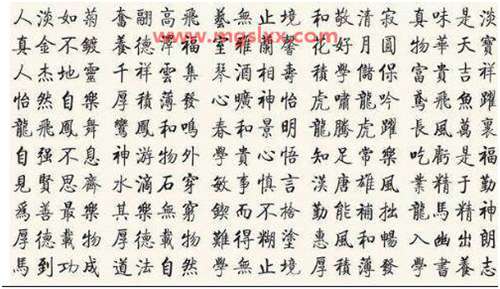 人淡如菊 奮翮高飛 藝無止境 和敬清寂 真味是淡
真金不鍍 養德 福 室雅蘭馨 花好月圓 物華天寶
人杰地靈 千祥雲集 琴 壽 積學儲保 富貴吉祥
怡然自樂 厚積薄發 心曠神怡 虎嘯龍吟 鳶飛魚躍
龍飛鳳舞 鸞鳳和鳴 春和景明 龍騰虎躍 長風萬裏
自强不息 神游物外 學貴心悟 知足常樂 吃虧是福
見賢思齊 水滴石穿 敏事慎言 漢唐雄風 業精于勤
爲善最樂 其樂無窮 鍥而不捨 勤能補拙 龍馬精神
厚德載物 厚德載物 難得糊塗 惠風和暢 入幽出朗
馬到功成 道法自然 學無止境 厚積薄發 學書養志